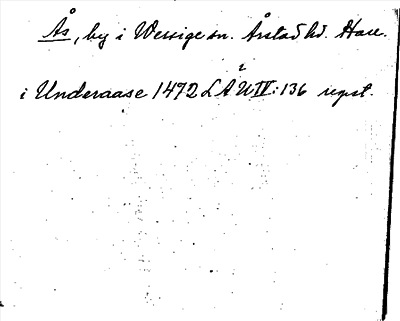 Ås, by i Wessige sn. Årstad hd. Hall.
i Underaase 1472 LÄ² U IV:136 regist.